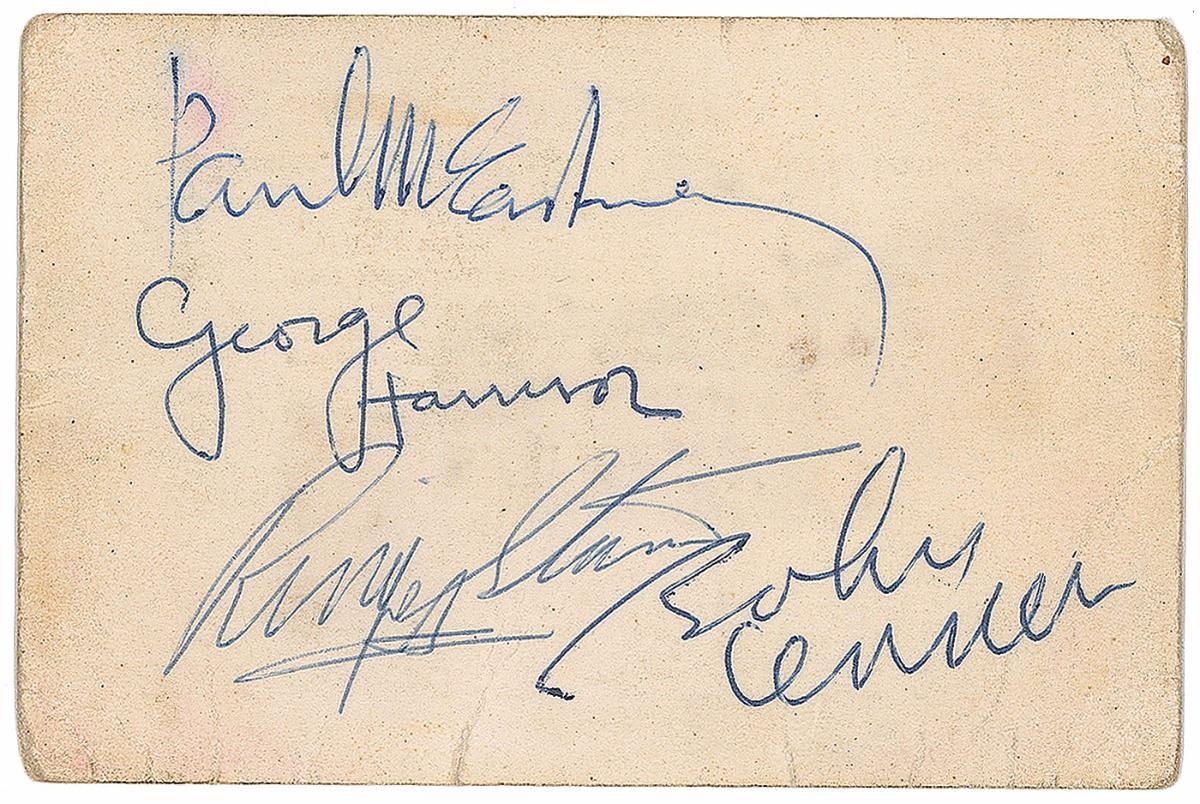 Paul McCartney
George
Harrison
Ringo Starr
John
Lennon